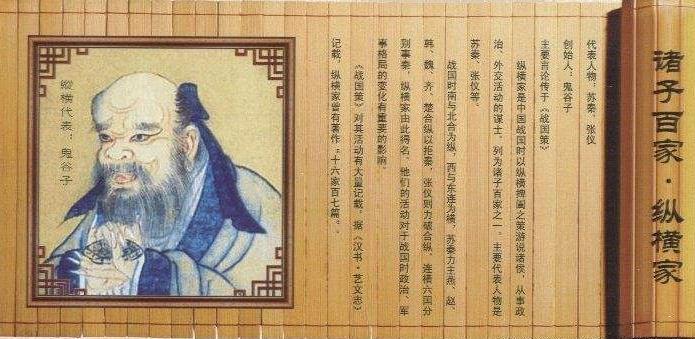 诸子百家·纵横家
代表人物：苏秦、张仪
创始人：鬼谷子
主要言论传于《战国策》
纵横家是中国战国时以纵横捭阖之策游说诸侯，从事政
治、外交活动的谋士。列为诸子百家之一。主要代表人物是
苏秦、张仪等。
战国时南与北合为纵，西与东连为横，苏秦力主燕、赵、
韩、魏、齐、楚合纵以拒秦，张仪则力破合纵，连横六国分
别事秦，纵横家由此得名。他们的活动对于战国时政治、军
事格局的变化有重要的影响。
《战国策》对其活动有大量记载。据《汉书·艺文志》
记载，纵横家曾有著作“十六家百七篇”。
縱横代表：鬼谷子